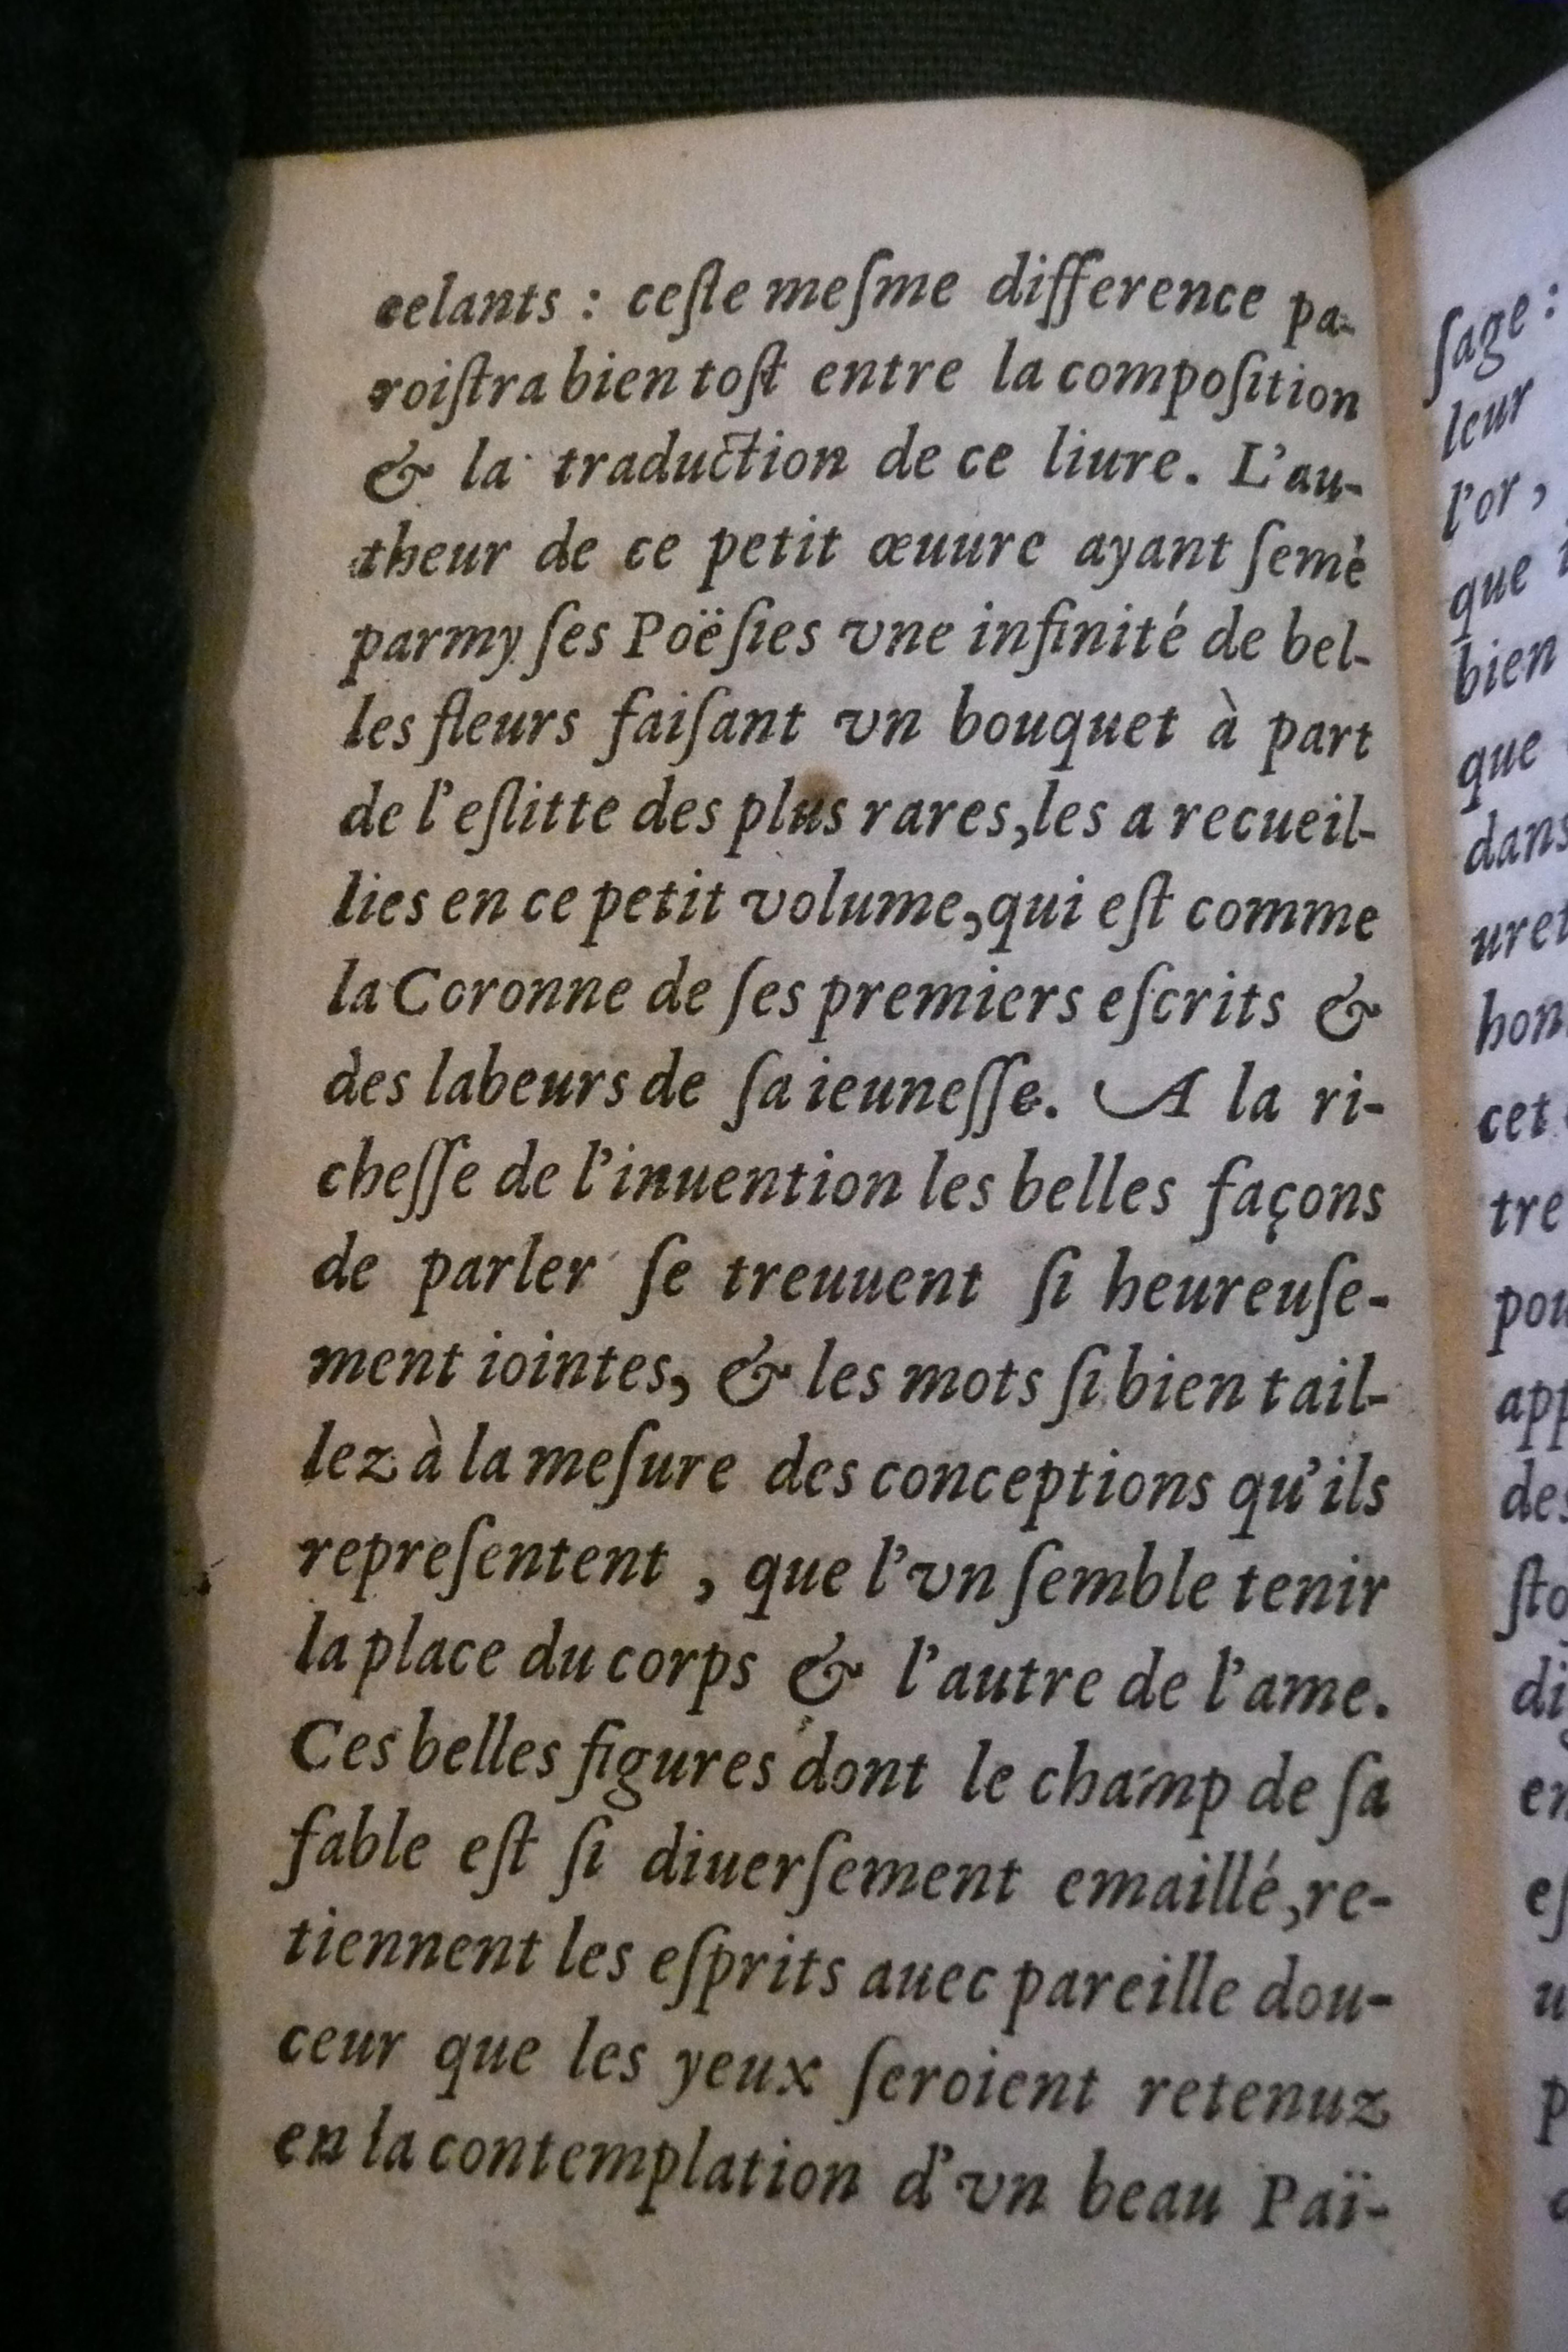 celants : ceſte meſme difference pa-
roiſtra bien toſt entre la compoſition
& la traduction de ce liure. L'au-
theur de ce petit œuure ayant ſemè
parmy ſes Poëſies vne infinité de bel-
les fleurs faiſant vn bouquet à part
de l'eſlitte des plus rares, les a recueil-
lies en ce petit volume, qui eſt comme
la Coronne de ſes premiers eſcrits &
des labeurs de ſa ieuneſſe. A la ri-
cheſſe de l'inuention les belles façons
de parler ſe treuuent ſi heureuſe-
ment iointes, & les mots ſi bien tail-
lez à la meſure des conceptions qu'ils
repreſentent , que l'vn ſemble tenir
la place du corps & l'autre de l'ame.
Ces belles figures dont le champ de ſa
fable eſt ſi diuerſement emaillé, re-
tiennent les eſprits auec pareille dou-
ceur que les yeux ſeroient retenuz
en la contemplation d'vn beau Paï-
ſage :
leur
l'or ,
que
bien
que
dans
uret
hon
cet
tre
pou
app
des
ſto
di
en
eſ
u
p